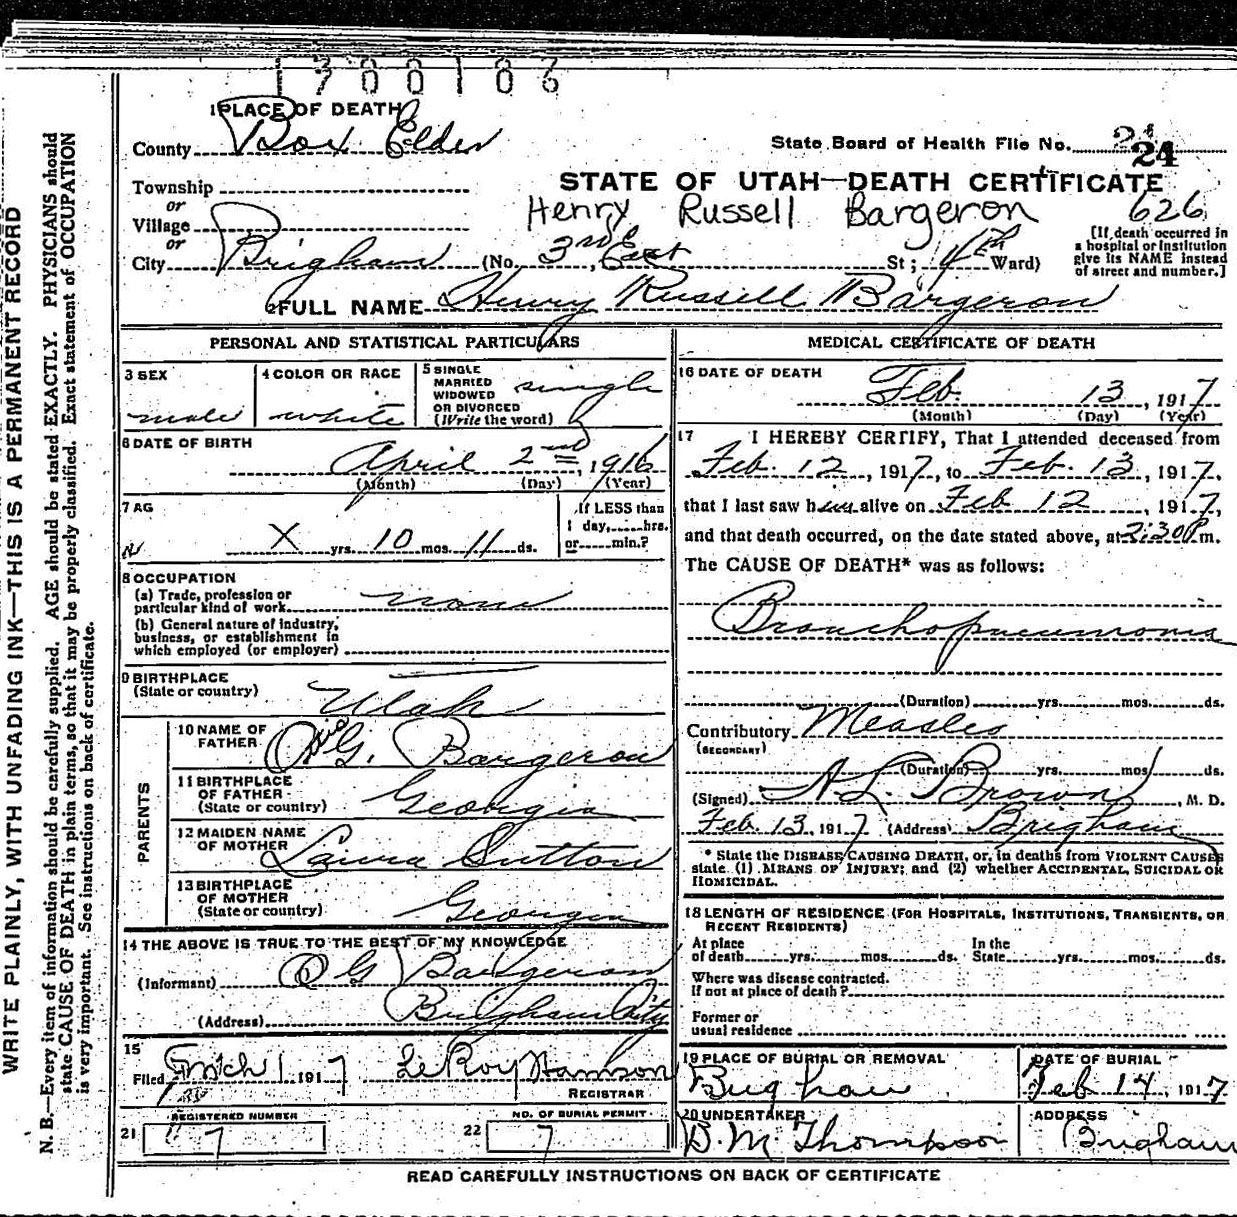 1300106
1 PLACE OF DEATH
County Box Elder
State Board of Health File No. 24
Township
STATE OF UTAH—DEATH CERTIFICATE
or
Village
Henry Russell Bargeron 626
or
City Brigham (No. 3rd East St; 4th Ward)
[If death occurred in
a hospital or institution
give its NAME instead
of street and number.]
2 FULL NAME Henry Russell Bargeron
PERSONAL AND STATISTICAL PARTICULARS
3 SEX
male
4 COLOR OR RACE
white
5 SINGLE
MARRIED
WIDOWED
OR DIVORCED
(Write the word)
single
6 DATE OF BIRTH
April 2nd, 1916
(Month) (Day) (Year)
7 AG
X yrs. 10 mos. 11 ds.
If LESS than
1 day,......hrs.
or......min.?
8 OCCUPATION
(a) Trade, profession or
particular kind of work none
(b) General nature of industry,
business, or establishment in
which employed (or employer)
9 BIRTHPLACE
(State or country) Utah
PARENTS
10 NAME OF
FATHER O. G. Bargeron
11 BIRTHPLACE
OF FATHER
(State or country) Georgia
12 MAIDEN NAME
OF MOTHER Laura Sutton
13 BIRTHPLACE
OF MOTHER
(State or country) Georgia
14 THE ABOVE IS TRUE TO THE BEST OF MY KNOWLEDGE
(Informant) O G Bargeron
(Address) Brigham City
15
Filed Mch 1 1917 LeRoy Hamson
REGISTRAR
REGISTERED NUMBER
21 7
NO. OF BURIAL PERMIT
22 7
MEDICAL CERTIFICATE OF DEATH
16 DATE OF DEATH
Feb. 13, 1917
(Month) (Day) (Year)
17 I HEREBY CERTIFY, That I attended deceased from
Feb. 12, 1917, to Feb. 13, 1917,
that I last saw him alive on Feb 12, 1917,
and that death occurred, on the date stated above, at 2:30 P.m.
The CAUSE OF DEATH* was as follows:
Bronchopneumonia
(Duration) yrs. mos. ds.
Contributory Measles
(SECONDARY)
(Duration) yrs. mos. ds.
(Signed) A L Brown, M. D.
Feb. 13, 1917 (Address) Brigham
* State the DISEASE CAUSING DEATH, or, in deaths from VIOLENT CAUSES
state (1) MEANS OF INJURY; and (2) whether ACCIDENTAL, SUICIDAL OR
HOMICIDAL.
18 LENGTH OF RESIDENCE (FOR HOSPITALS, INSTITUTIONS, TRANSIENTS, OR
RECENT RESIDENTS)
At place
of death......yrs.......mos.......ds.
In the
State......yrs.......mos.......ds.
Where was disease contracted.
If not at place of death?
Former or
usual residence
19 PLACE OF BURIAL OR REMOVAL
Brigham
DATE OF BURIAL
Feb 14, 1917
20 UNDERTAKER
D. M. Thompson
ADDRESS
Brigham
READ CAREFULLY INSTRUCTIONS ON BACK OF CERTIFICATE
WRITE PLAINLY, WITH UNFADING INK—THIS IS A PERMANENT RECORD
N. B.—Every item of information should be carefully supplied. AGE should be stated EXACTLY. PHYSICIANS should
state CAUSE OF DEATH in plain terms, so that it may be properly classified. Exact statement of OCCUPATION
is very important. See instructions on back of certificate.